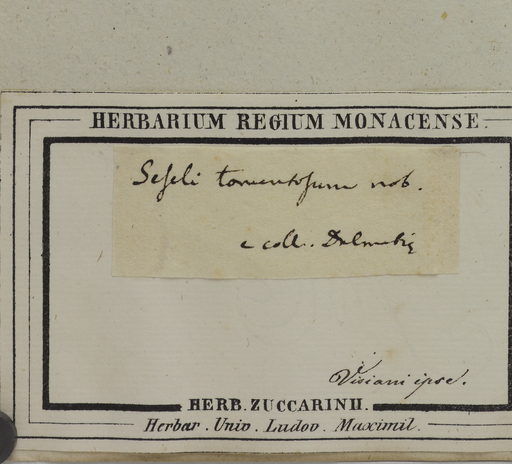 HERBARIUM REGIUM MONACENSE
Seseli tomentosum nob.
e coll. Dalmatię
Visiani ipse.
HERB. ZUCCARINII.
Herbar. Univ. Ludov. Maximil.